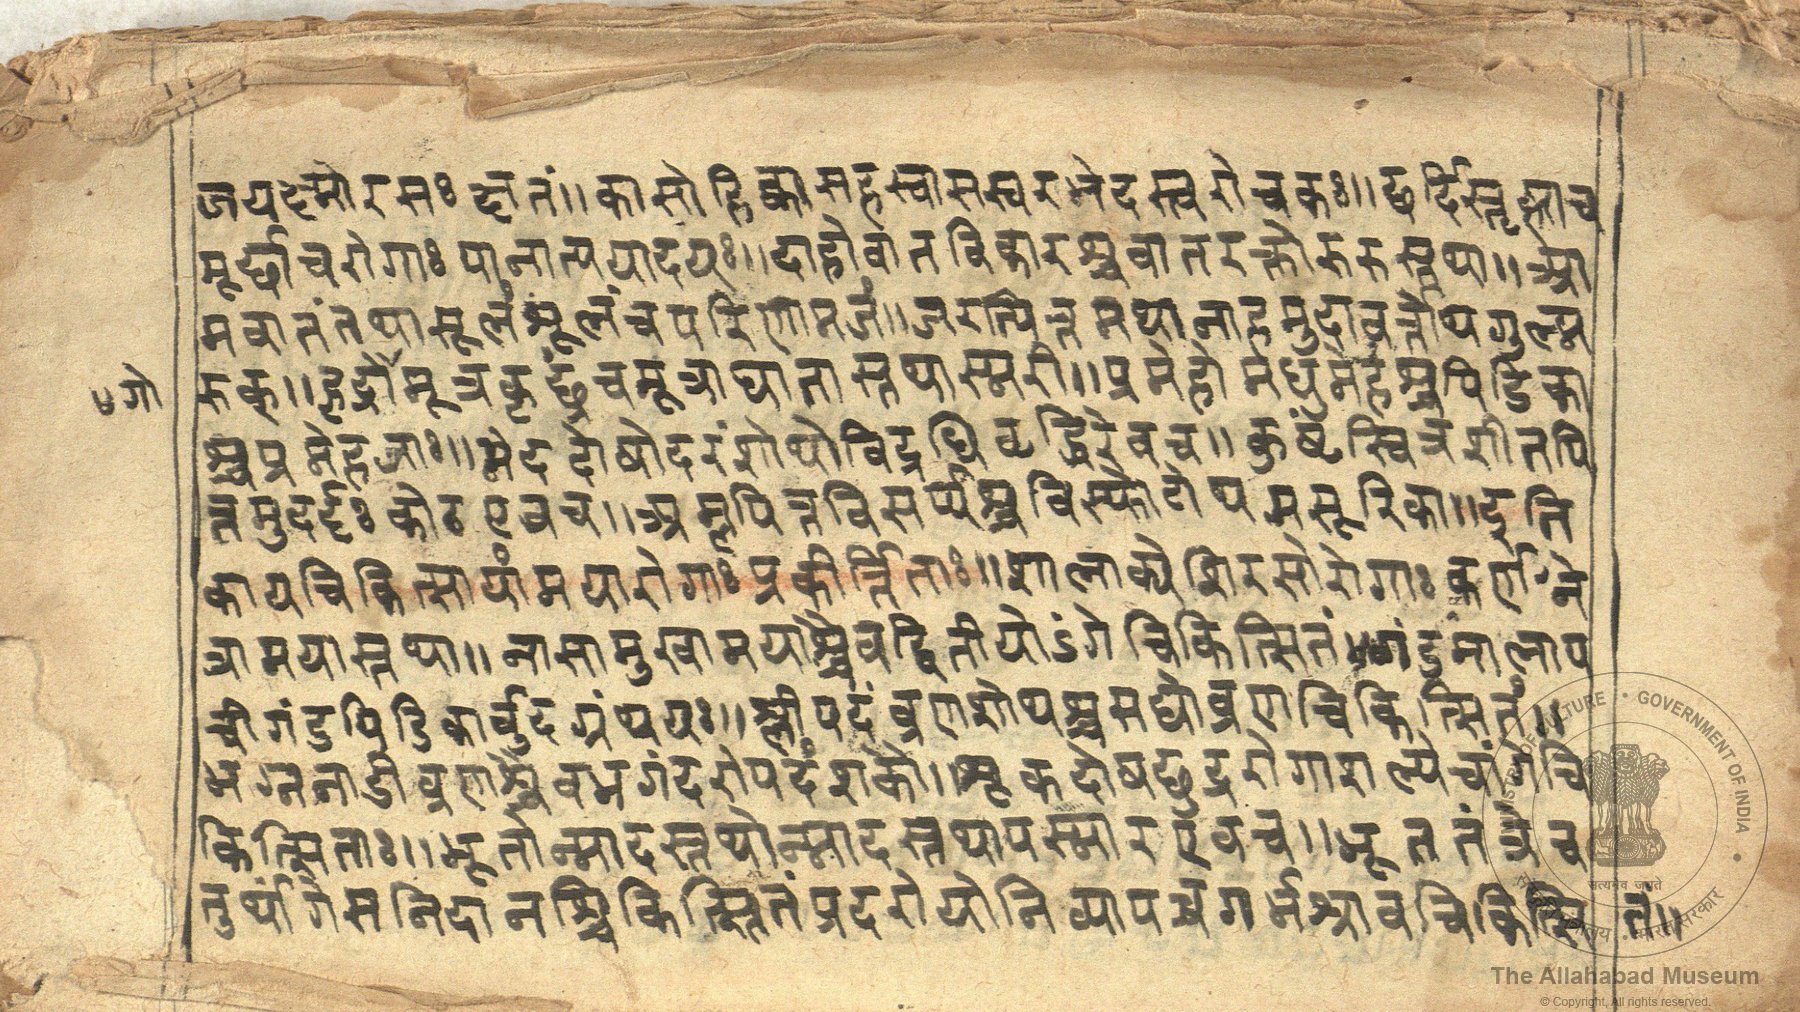 जयदृमोरसः दृतं॥कासोहिक्कासहस्वासस्वरभेदस्त्वरोचकः॥छर्दिस्तृष्णाच
मूर्छाचरोगाः पानात्पयादयः॥दाहोवातविकारश्चवातरक्तोरुरुस्तथा॥आ
मवातंतथासूलंश्रूलंचपरिणामजं॥जरत्पित्तमथानाहमुदावर्त्तोथगुल्म
रुक्॥हृद्रोमूत्रकृछ्रंचमूत्राघातास्तथास्मरी॥प्रमेहोमधुमेहश्चपिडिका
४गो
श्चप्रमेहजाः॥मेददोषोदरंशोथोविद्रधिवृद्धिरेवच॥कुष्टंस्वित्रशीतपि
त्तमुदर्दः कोठएवच॥अम्लपित्तविसर्प्पश्चविस्फोटोथमसूरिका॥इति
कायचिकित्सायांमयारोगाः प्रकीर्त्तिताः॥शालाक्येशिरसोरोगाः कर्णने
त्रामयास्तथा॥नासामुखामयाश्चैवद्वितीयोऽंगेचिकित्सितं॥गंडमालाप
चीगंडपिडिकार्वुदग्रंथयः॥श्लीपदंव्रणशोथश्चमघोव्रणचिकित्सितं॥
भग्ननाडीव्रणाश्चैवभगंदरोपदंशकौ॥श्रृकदोषछुद्ररोगाशल्येचांगेचि
कित्सिताः॥भूतोन्मादस्तथोन्मादस्तथापस्मारएवच॥भूततंत्रंच
तुर्थांगेसनिदानश्चिकित्सितंप्रदरोयोनिव्यापच्चगर्भश्रावचिकित्सितं॥
सत्यमेव जयते
MINISTRY OF CULTURE • GOVERNMENT OF INDIA •
संस्कृति मंत्रालय • भारत सरकार
The Allahabad Museum
© Copyright, All rights reserved.